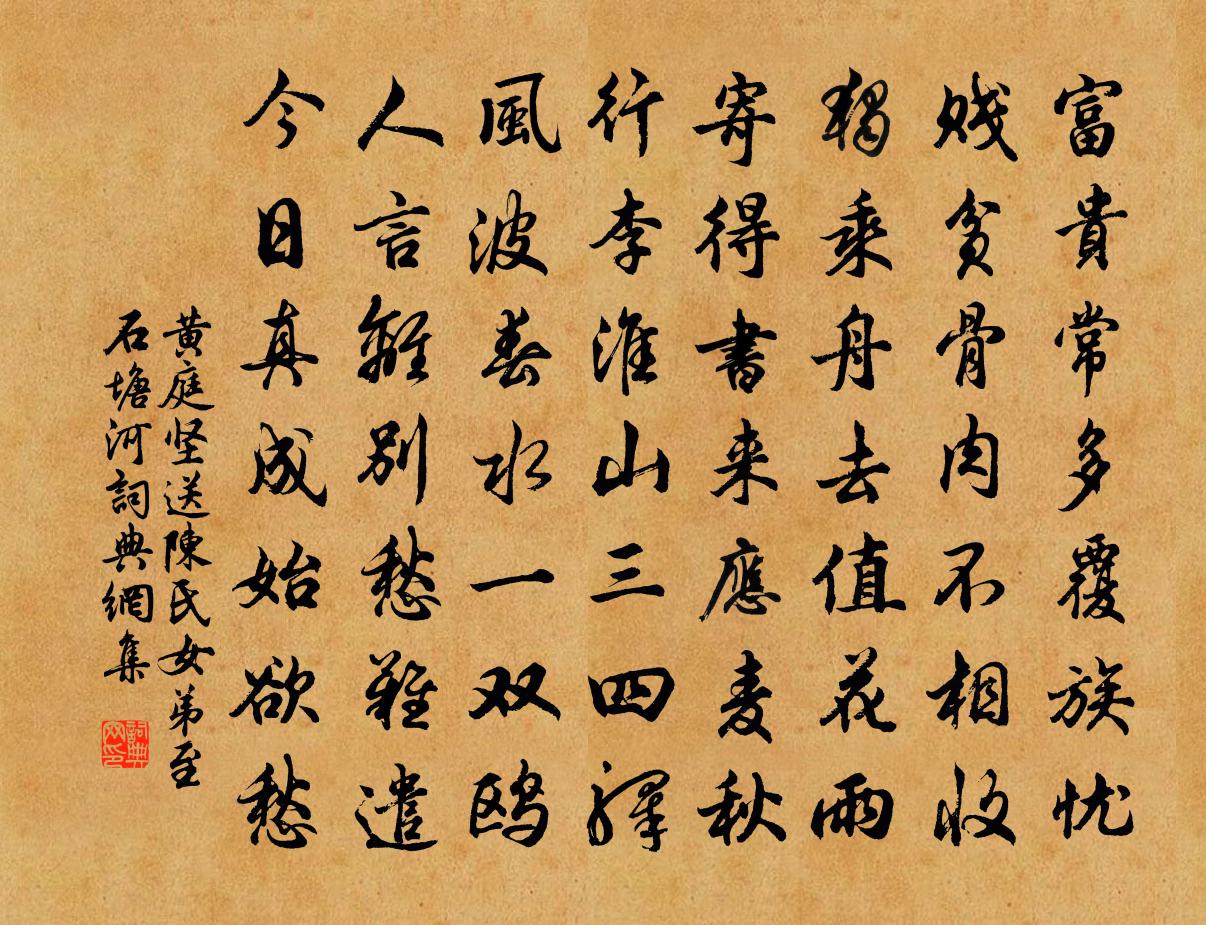 富貴常多覆族忧
贱贫骨肉不相收
獨乘舟去值花雨
寄得書来應麦秋
行李淮山三四驛
風波春水一双鸥
人言離别愁難遣
今日真成始欲愁
黄庭坚送陳氏女弟至
石塘河詞典網集
詞典
网印